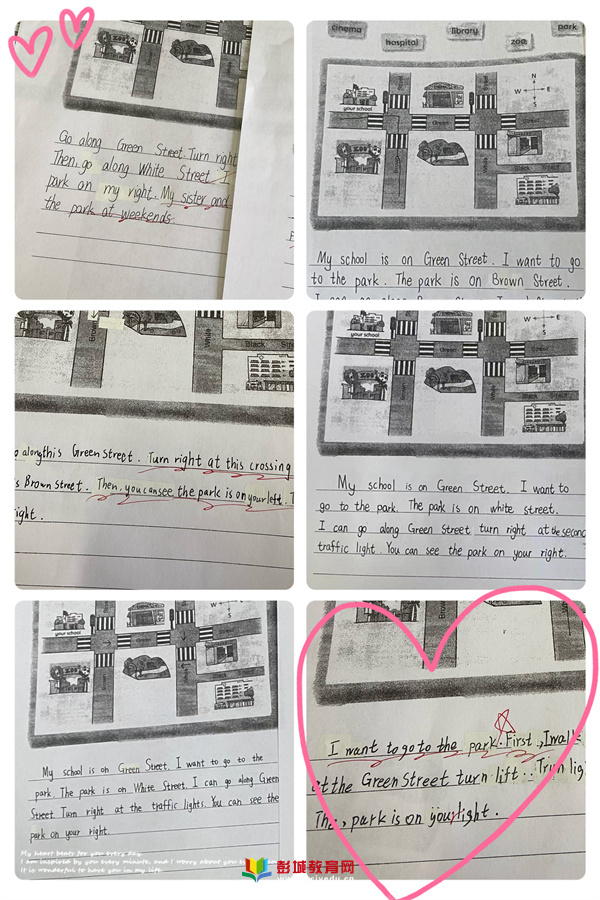 Go along Green Street. Turn right
Then go along White Street. I
park on my right. My sister and
the park at weekends.
cinema
hospital
library
zoo
park
your school
ZOO
Green
White
Black
N
W
E
S
My school is on Green Street. I want to go
to the park. The park is on Brown Street.
Brown
White
Black Stre
o alongthis Green Street. Turn right at this crossing
s Brown Street. Then, you can see the park is on your left. T
right.
your school
ZOO
Green
White
Black
W
E
S
My school is on Green Street. I want to
go to the park. The park is on white street.
I can go along Green Street turn right at the second
traffic light. You can see the park on your right.
your school
ZOO
W
E
S
My school is on Green Street. I want to go to the
park. The park is on White Street. I can go along Green
Street. Turn right at the traffic lights. You can see the
park on your right.
My heart beats for you every day.
I am inspired by you every minute, and I worry about you every
It is wonderful to have you in my life.
Brown
I want to go to the park. First, I walk
at the Green Street turn lift. Trun lig
The, park is on your light.
彭城教育网